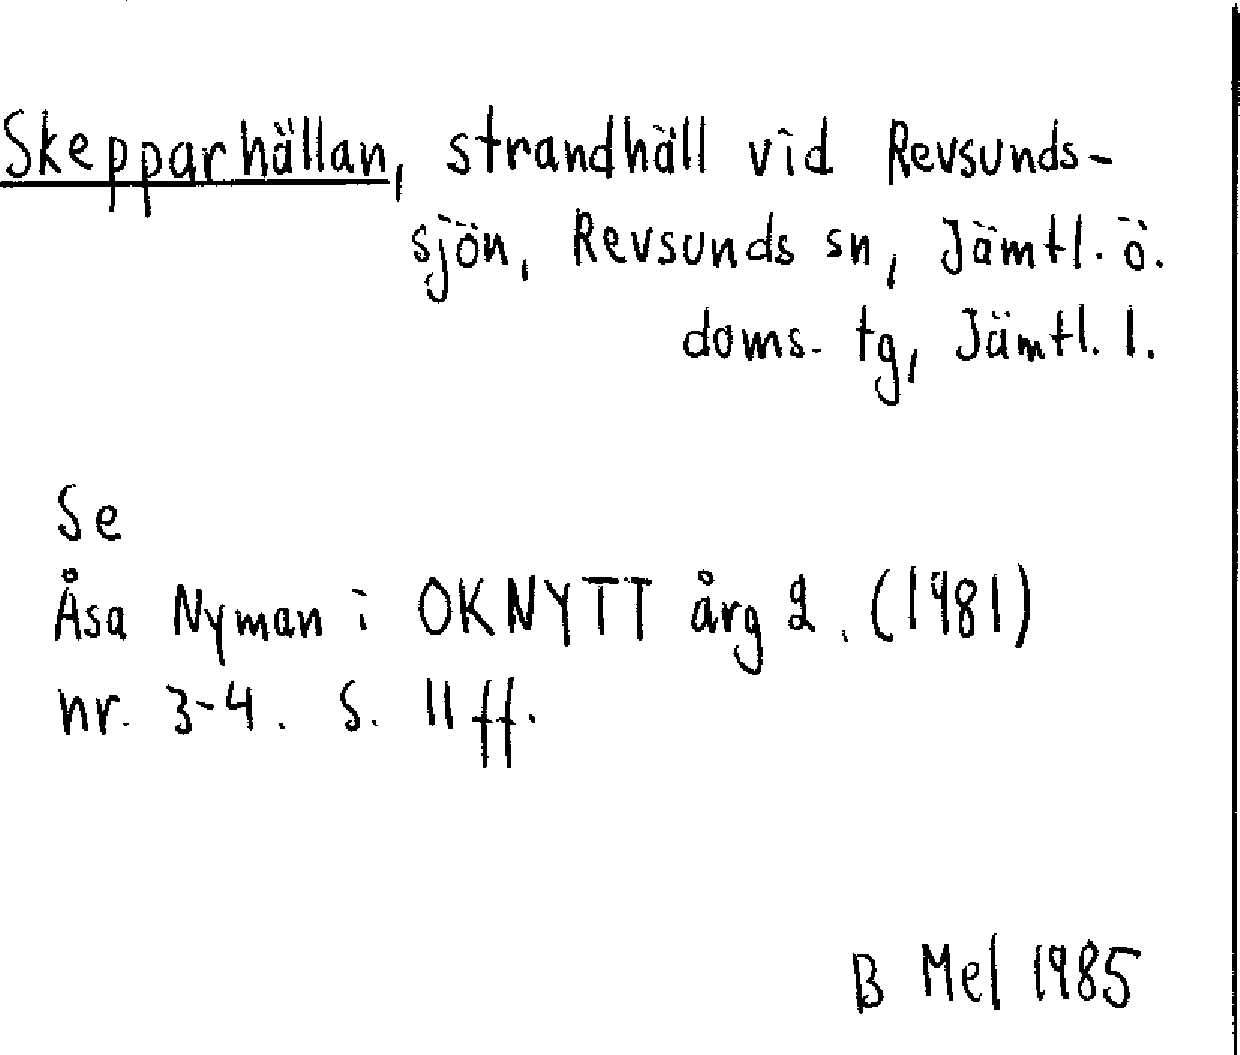 Skepparhällan, strandhäll vid Revsunds-
sjön, Revsunds sn, Jämtl. ö.
doms. tg, Jämtl. l.
Se
Åsa Nyman i OKNYTT årg 2. (1981)
nr. 3-4. S. 11 ff.
B Mel 1985